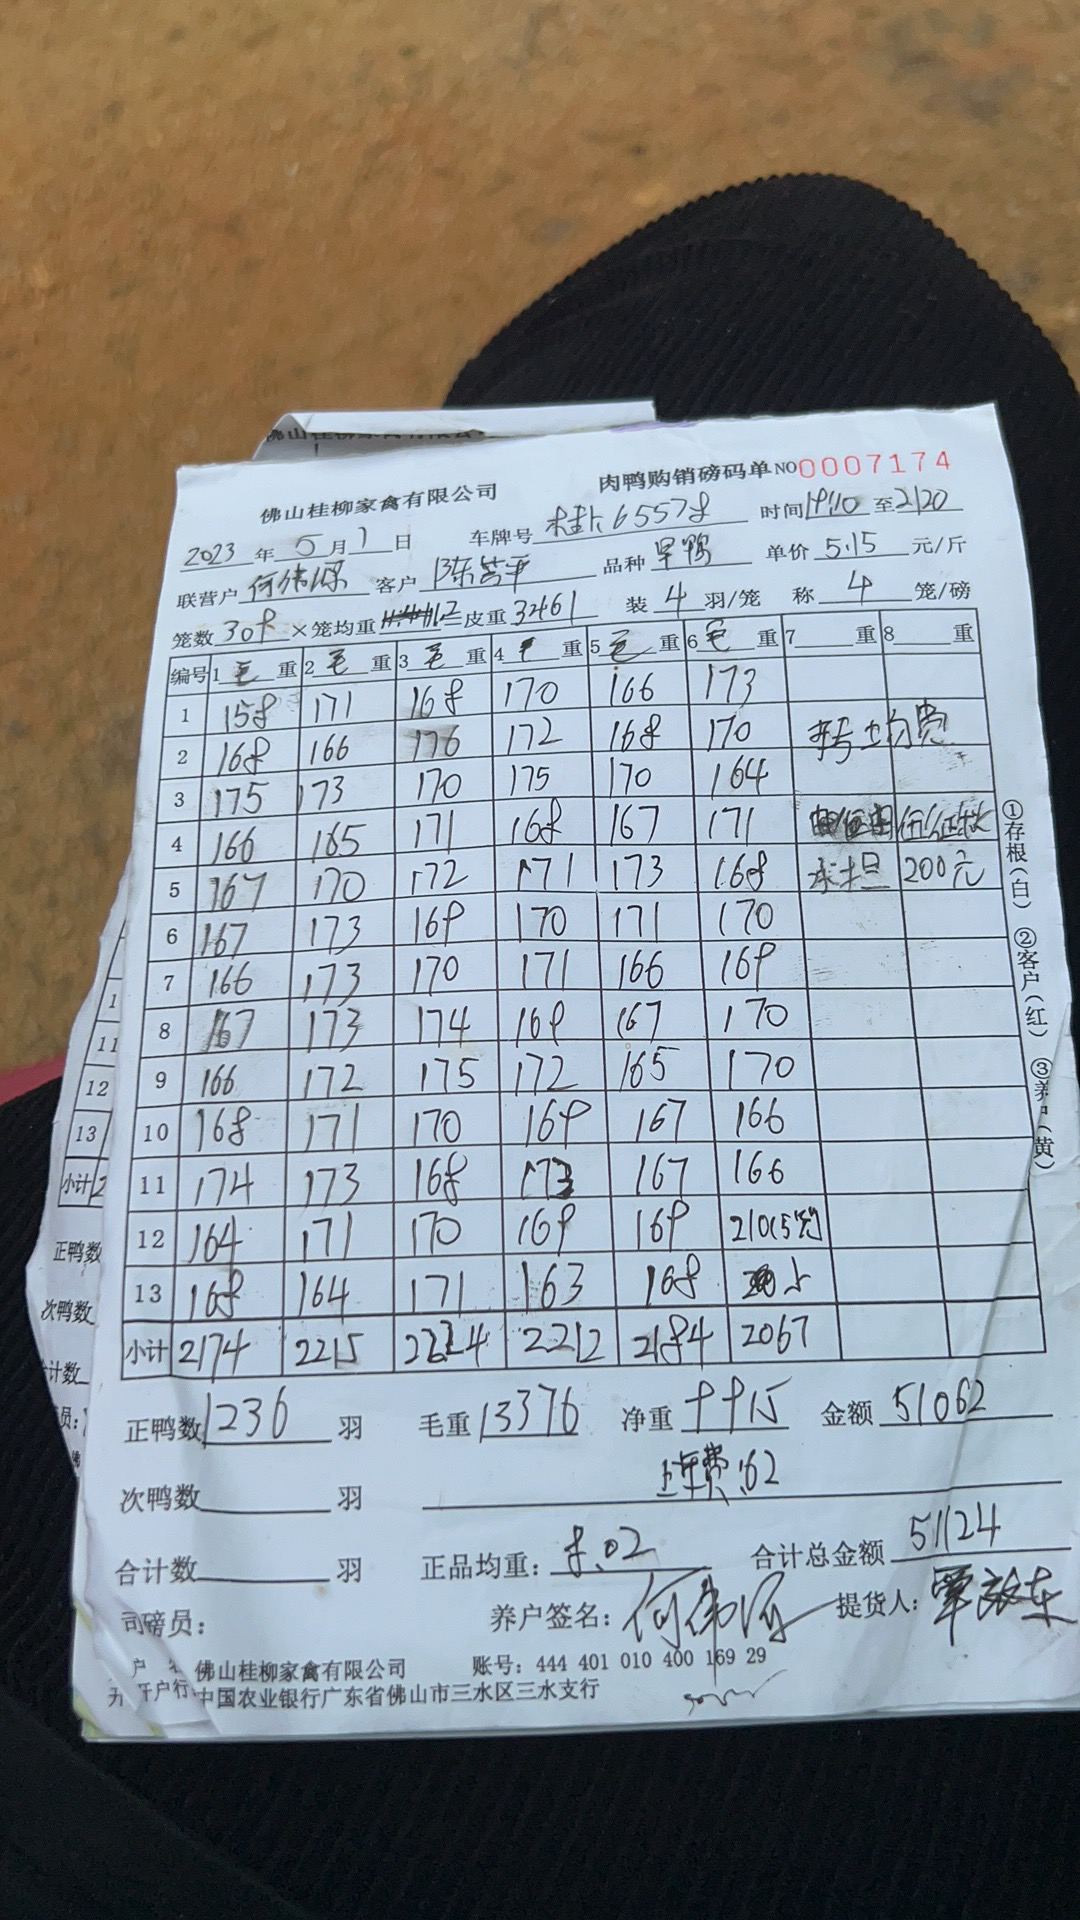 佛山桂柳家禽有限公司
肉鸭购销磅码单 NO 0007174
2023 年 5 月 1 日 车牌号 桂 65578 时间 19:10 至 2120
联营户 何伟深 客户 陈 平 品种 旱鸭 单价 5.15 元/斤
笼数 309 ×笼均重 11.2 =皮重 3461 装 4 羽/笼 称 4 笼/磅
编号 1 毛 重 2 毛 重 3 毛 重 4 毛 重 5 毛 重 6 毛 重 7 重 8 重
1 158 171 168 170 166 173
2 168 166 176 172 168 170 均费
3 175 173 170 175 170 164
4 166 165 171 168 167 171
5 167 170 172 171 173 168 承担 200元
6 167 173 169 170 171 170
7 166 173 170 171 166 169
8 167 173 174 169 167 170
9 166 172 175 172 165 170
10 168 171 170 169 167 166
11 174 173 168 173 167 166
12 164 171 170 169 169 210(5笼)
13 168 164 171 163 168
小计 2174 2215 2224 2212 2184 2067
正鸭数 1236 羽 毛重 13376 净重 9915 金额 51062
上车费:62
次鸭数 羽
合计数 羽 正品均重: 8.02 合计总金额 51124
司磅员: 养户签名: 何伟深 提货人: 覃
佛山桂柳家禽有限公司 账号: 444 401 010 400 169 29
开户行 中国农业银行广东省佛山市三水区三水支行
①存根(白) ②客户(红) ③养户(黄)
佛山桂柳家禽有限公司
11
12
13
小计 2
正鸭数
次鸭数